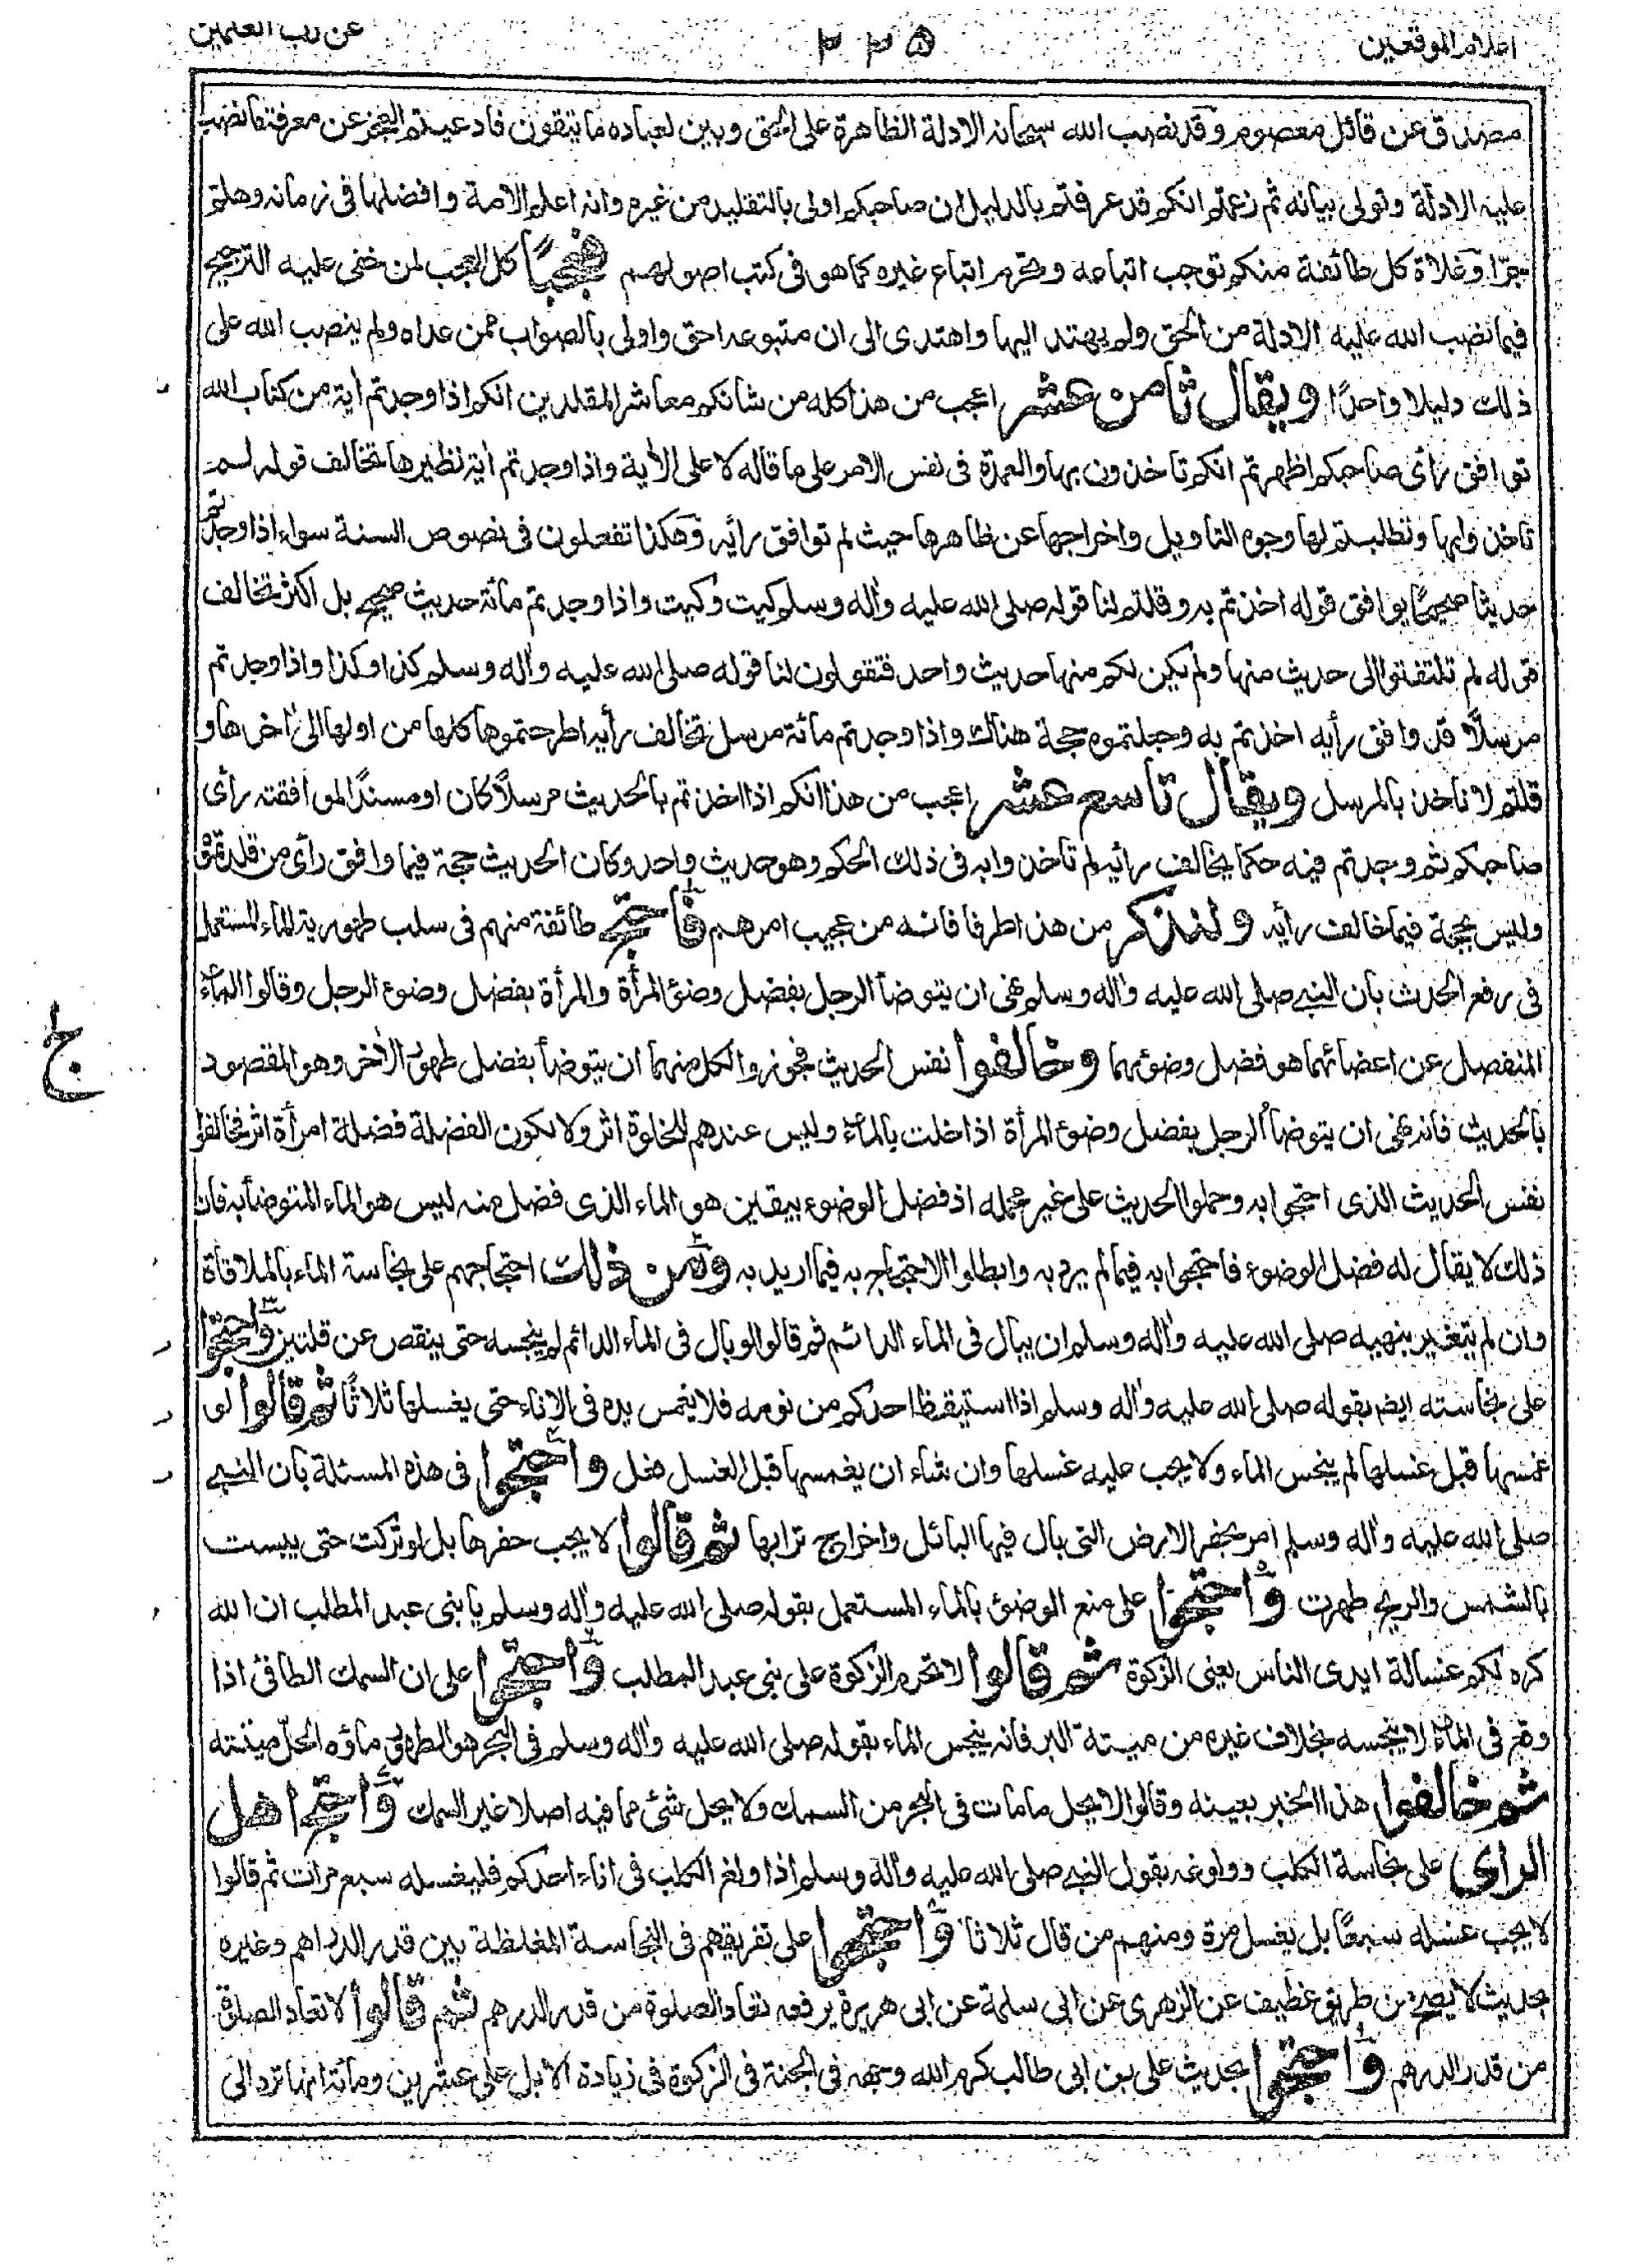 اعلام الموقعين
٢٢٥
عن رب العلمين
مصدق عن قائل معصوم وقد نصب الله سبحانه الادلة الظاهرة على الحق وبين لعباده ما يتقون فادعيتم العجز عن معرفة ما نصب
عليه الادلة وتولى بيانه ثم زعمتم انكم قد عرفتم بالدليل ان صاحبكم اولى بالتقليد من غيره وانه اعلم الامة وافضلها فى زمانه وهلم
جرّا وغلاة كل طائفة منكم توجب اتباعه وتحرم اتباع غيره كما هو فى كتب اصولهم فعجبًا كل العجب لمن خفى عليه الترجيح
فيما نصب الله عليه الادلة من الحق ولم يهتد اليها واهتدى الى ان متبوعه احق واولى بالصواب ممن عداه ولم ينصب الله على
ذلك دليلا واحدًا ويقال ثامن عشر اعجب من هذا كله من شانكم معاشر المقلدين انكم اذا وجدتم أية من كتاب الله
توافق رأى صاحبكم اظهرتم انكم تاخذون بها والعمدة فى نفس الامر على ما قاله لا على الأية واذا وجدتم أية نظيرها تخالف قوله لم
تاخذوا بها وتطلبتم لها وجوه التاويل واخراجها عن ظاهرها حيث لم توافق رأيه وهكذا تفعلون فى نصوص السنة سواء اذا وجدتم
حديثا صحيحًا يوافق قوله اخذتم به وقلتم لنا قوله صلى الله عليه وأله وسلم كيت وكيت واذا وجدتم مائة حديث صحيح بل اكثر تخالف
قوله لم تلتفتوا الى حديث منها ولم يكن لكم منها حديث واحد فتقولون لنا قوله صلى الله عليه وأله وسلم كذا وكذا واذا وجدتم
مرسلًا قد وافق رأيه اخذتم به وجعلتموه حجة هناك واذا وجدتم مائة مرسل تخالف رأيه اطرحتموها كلها من اولها الى أخرها و
قلتم لا ناخذ بالمرسل ويقال تاسع عشر اعجب من هذا انكم اذا اخذتم بالحديث مرسلًا كان او مسندًا لموافقته رأى
صاحبكم ثم وجدتم فيه حكما يخالف رأيه لم تاخذوا به فى ذلك الحكم وهو حديث واحد وكان الحديث حجة فيما وافق رأى من قلدتموه
وليس بحجة فيما خالف رأيه ولنذكر من هذا طرفا فانه من عجيب امرهم فاحتج طائفة منهم فى سلب طهورية الماء المستعمل
فى رفع الحدث بان النبى صلى الله عليه وأله وسلم نهى ان يتوضأ الرجل بفضل وضوء المرأة والمرأة بفضل وضوء الرجل وقالوا الماء
المنفصل عن اعضائهما هو فضل وضوئهما وخالفوا نفس الحديث فجوزوا لكل منهما ان يتوضأ بفضل طهور الأخر وهو المقصود
بالحديث فانه نهى ان يتوضأ الرجل بفضل وضوء المرأة اذا خلت بالماء وليس عندهم للخلوة اثر ولا لكون الفضلة فضلة امرأة اثر فخالفوا
نفس الحديث الذى احتجوا به وحملوا الحديث على غير محمله اذ فضل الوضوء بيقين هو الماء الذى فضل منه ليس هو الماء المتوضأ به فان
ذلك لا يقال له فضل الوضوء فاحتجوا به فيما لم يرد به وابطلوا الاحتجاج به فيما اريد به ومن ذلك احتجاجهم على نجاسة الماء بالملاقاة
وان لم يتغير بنهيه صلى الله عليه وأله وسلم ان يبال فى الماء الدائم ثم قالوا لو بال فى الماء الدائم لم ينجسه حتى ينقص عن قلتين واحتجوا
على نجاسته ايضا بقوله صلى الله عليه وأله وسلم اذا استيقظ احدكم من نومه فلا يغمس يده فى الاناء حتى يغسلها ثلاثًا ثم قالوا لو
غمسها قبل غسلها لم ينجس الماء ولا يجب عليه غسلها وان شاء ان يغمسها قبل الغسل فعل واحتجوا فى هذه المسئلة بان النبى
صلى الله عليه وأله وسلم امر بحفر الارض التى بال فيها البائل واخراج ترابها ثم قالوا لا يجب حفرها بل لو تركت حتى يبست
بالشمس والريح طهرت واحتجوا على منع الوضوء بالماء المستعمل بقوله صلى الله عليه وأله وسلم يا بنى عبد المطلب ان الله
كره لكم غسالة ايدى الناس يعنى الزكوة ثم قالوا لا تحرم الزكوة على بنى عبد المطلب واحتجوا على ان السمك الطافى اذا
وقع فى الماء لا ينجسه بخلاف غيره من ميتة البر فانه ينجس الماء بقوله صلى الله عليه وأله وسلم فى البحر هو الطهور ماؤه الحلّ ميتته
ثم خالفوا هذا الخبر بعينه وقالوا لا يحل ما مات فى البحر من السمك ولا يحل شئ مما فيه اصلا غير السمك واحتج اهل
الرأى على نجاسة الكلب وولوغه بقول النبى صلى الله عليه وأله وسلم اذا ولغ الكلب فى اناء احدكم فليغسله سبع مرات ثم قالوا
لا يجب غسله سبعًا بل يغسل مرة ومنهم من قال ثلاثا واحتجوا على تفريقهم فى النجاسة المغلظة بين قدر الدراهم وغيره
بحديث لا يصح من طريق غطيف عن الزهرى عن ابى سلمة عن ابى هريرة يرفعه تعاد الصلوة من قدر الدرهم ثم قالوا لا تعاد الصلوة
من قدر الدرهم واحتجوا بحديث على بن ابى طالب كرم الله وجهه فى الجنة فى الزكوة فى زيادة الابل على عشرين ومائة انها ترد الى
ج